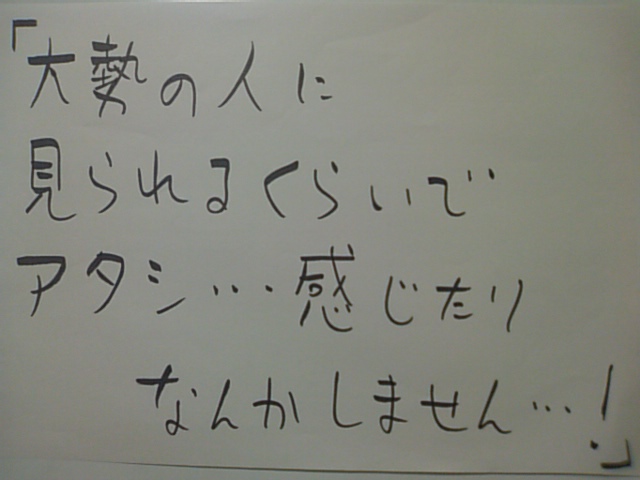 「大勢の人に
見られるくらいで
アタシ…感じたり
なんかしません…!」